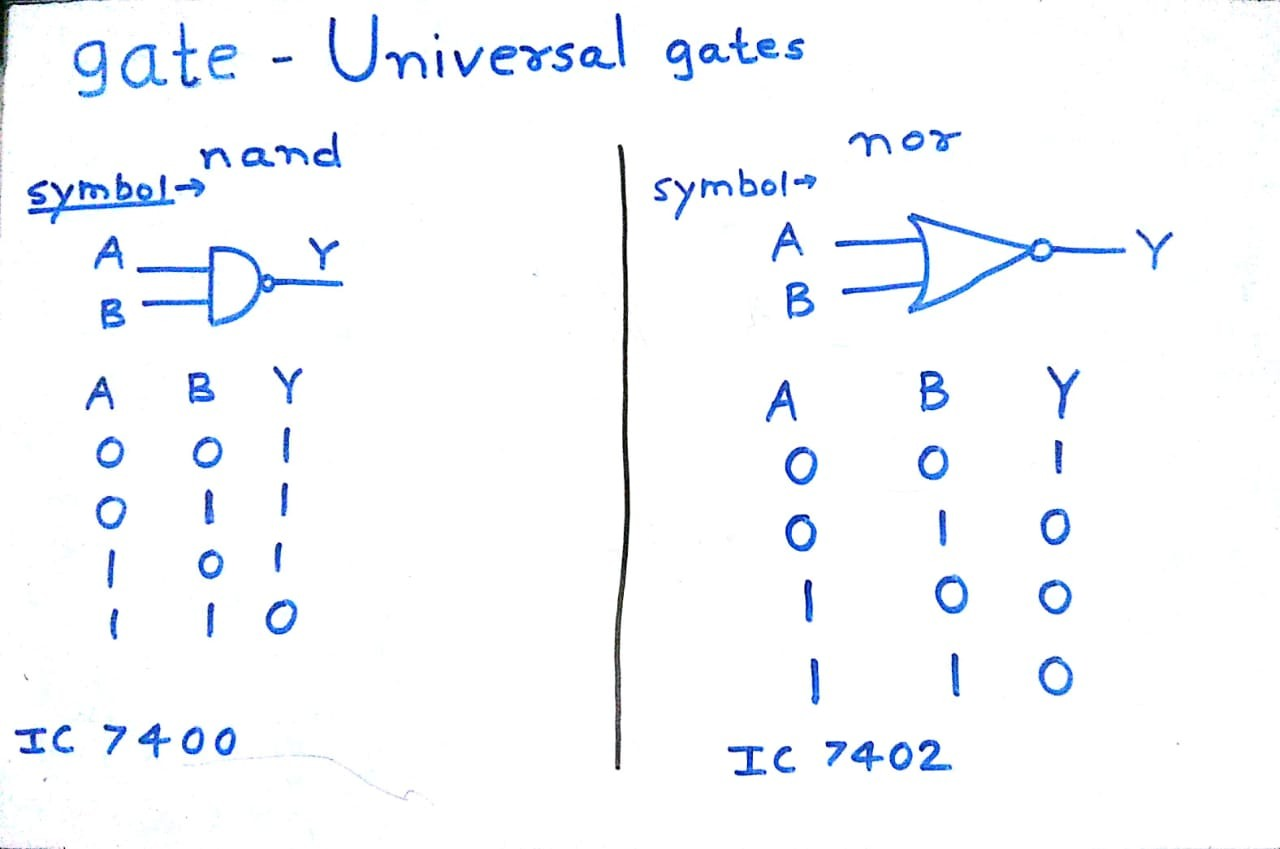 gate - Universal gates
nand
symbol→
A
B
Y
A B Y
0 0 1
0 1 1
1 0 1
1 1 0
IC 7400
nor
symbol→
A
B
Y
A B Y
0 0 1
0 1 0
1 0 0
1 1 0
IC 7402